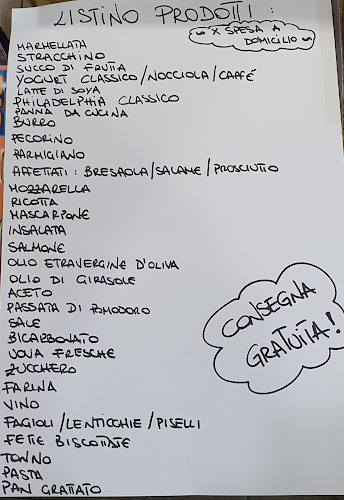 LISTINO PRODOTTI :
X SPESA A
DOMICILIO
MARMELLATA
STRACCHINO
SUCCO DI FRUTTA
YOGURT CLASSICO/NOCCIOLA/CAFFÉ
LATTE DI SOYA
PHILADELPHIA CLASSICO
PANNA DA CUCINA
BURRO
PECORINO
PARMIGIANO
AFFETTATI : BRESAOLA/SALAME/PROSCIUTTO
MOZZARELLA
RICOTTA
MASCARPONE
INSALATA
SALMONE
OLIO ETRAVERGINE D'OLIVA
OLIO DI GIRASOLE
ACETO
PASSATA DI POMODORO
SALE
BICARBONATO
UOVA FRESCHE
ZUCCHERO
FARINA
VINO
FAGIOLI/LENTICCHIE/PISELLI
FETTE BISCOTTATE
TONNO
PASTA
PAN GRATTATO
CONSEGNA
GRATUITA!